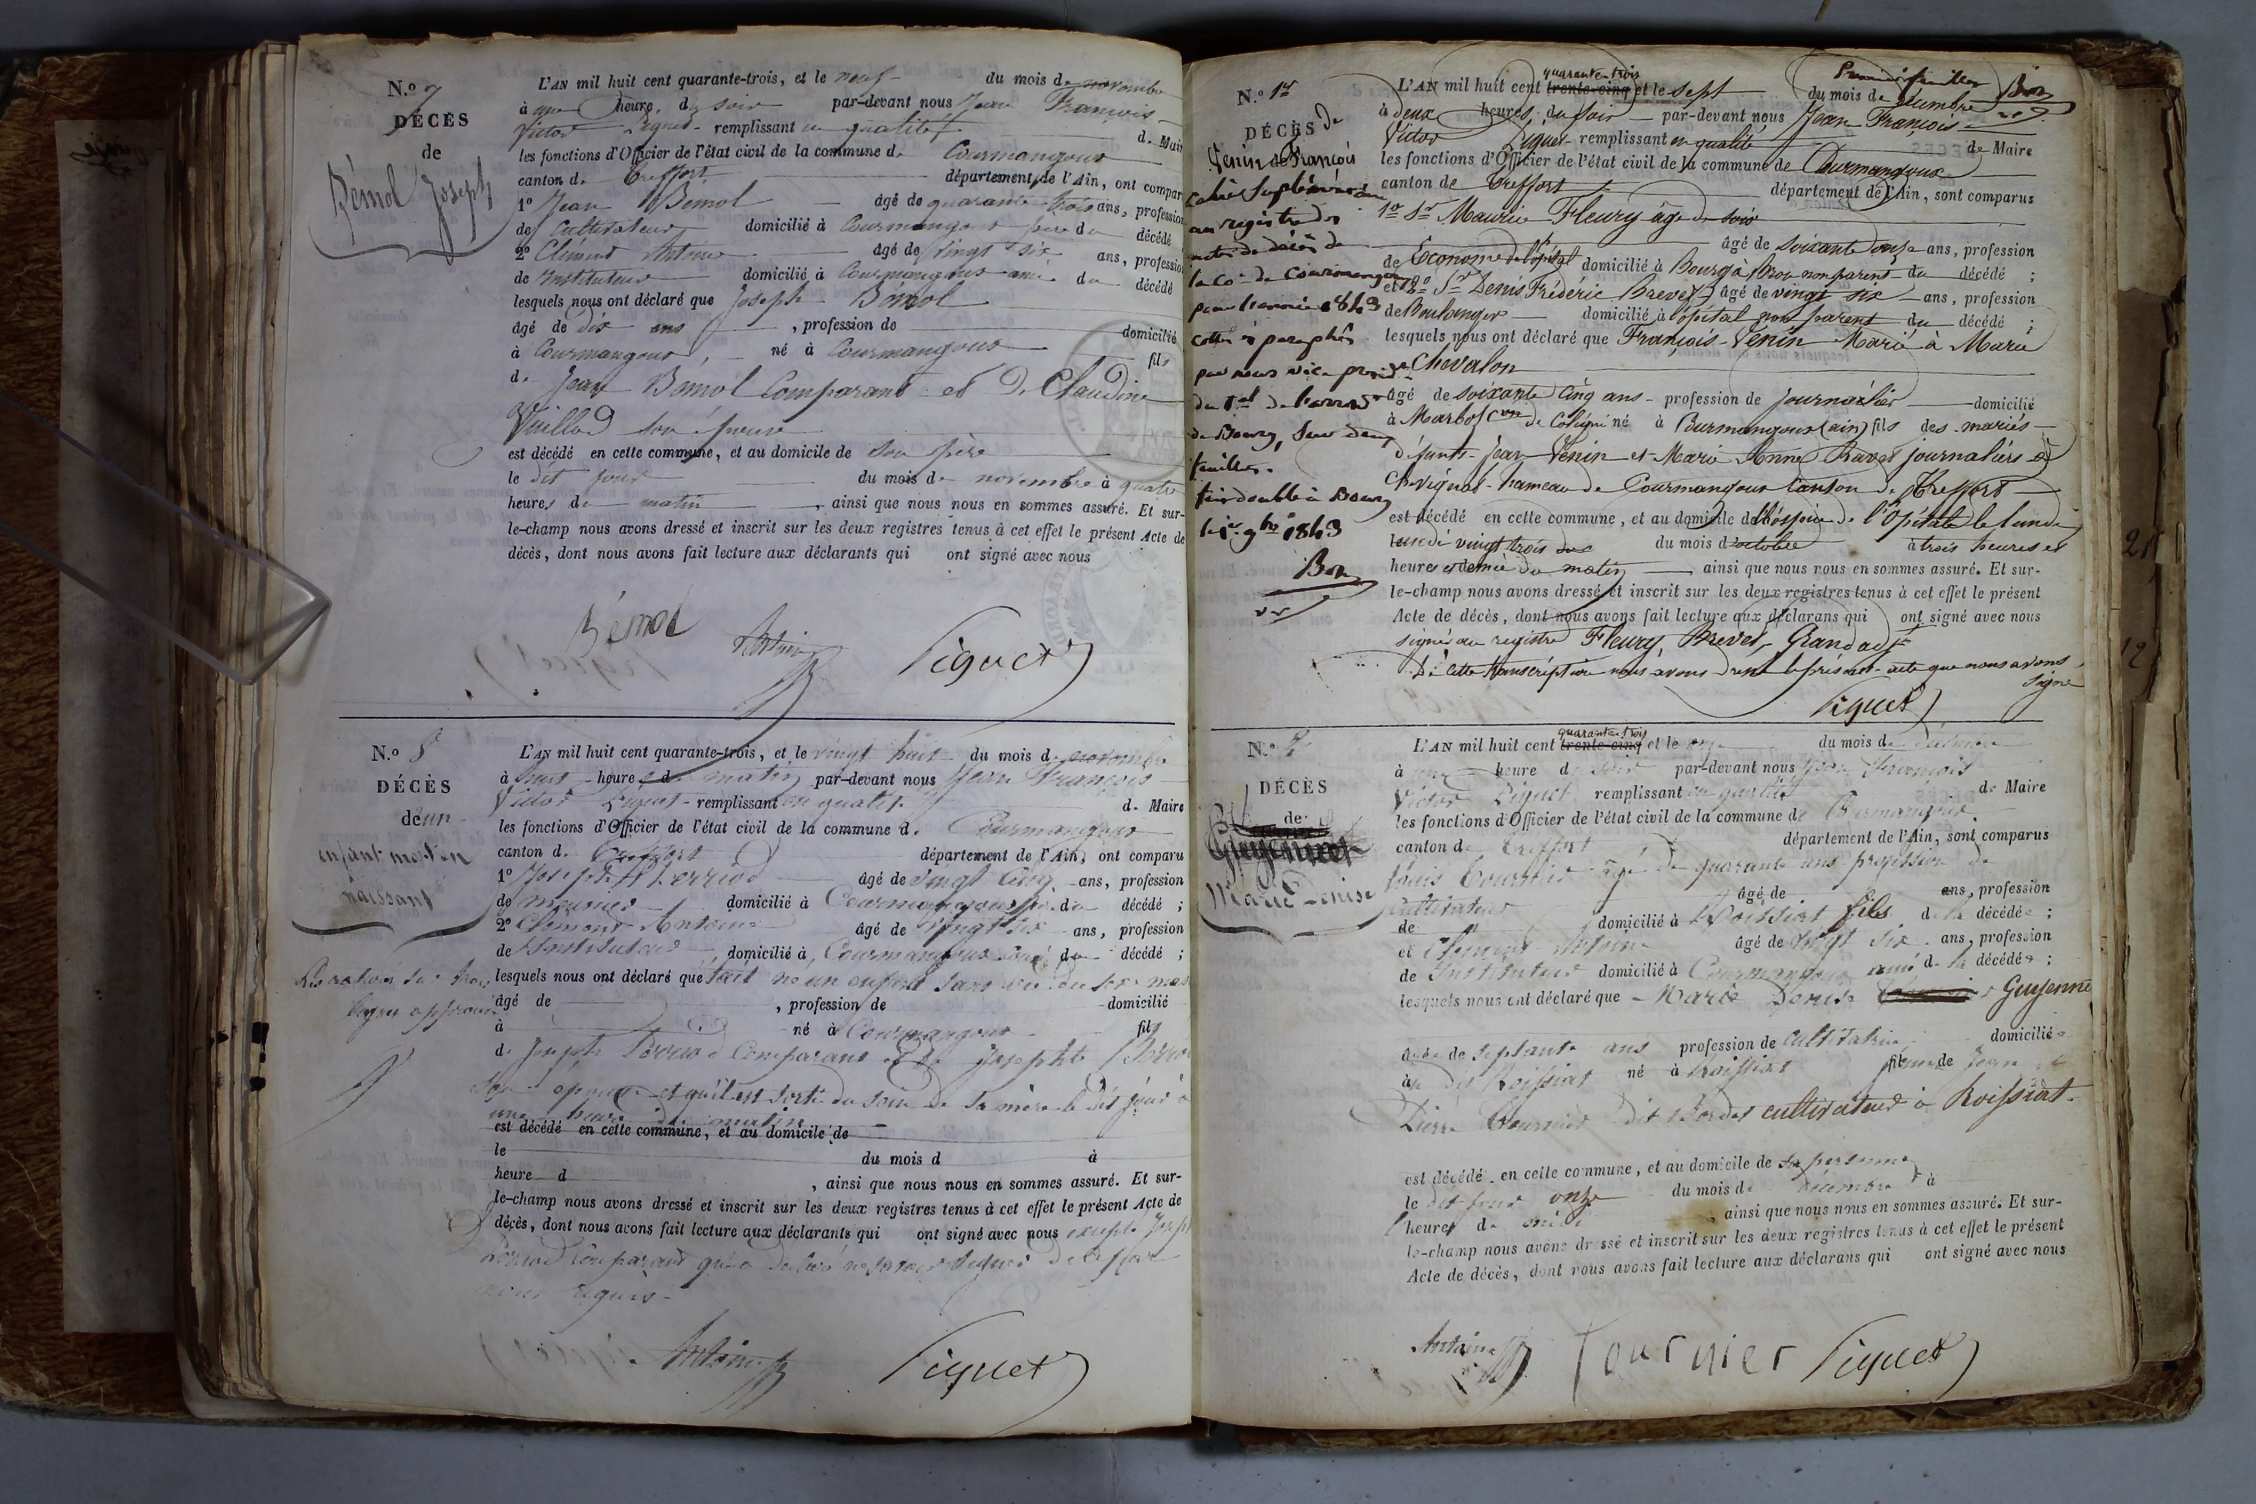 N.o 7
DÉCÈS
de
Bémol Joseph
L'AN mil huit cent quarante-trois, et le neuf du mois de novembre
à une heure du soir par-devant nous Jean François
Victor Piquet remplissant en qualité de Maire
les fonctions d'Officier de l'état civil de la commune de Courmangoux
canton de Treffort département de l'Ain, ont compar
1o Jean Bémol âgé de quarante trois ans, profession
de Cultivateur domicilié à Courmangoux père du décédé
2o Clément Antoine âgé de vingt six ans, profession
de Instituteur domicilié à Courmangoux ami du décédé
lesquels nous ont déclaré que Joseph Bémol
âgé de dix ans, profession de domicilié
à Courmangoux, né à Courmangoux fils
de Jean Bémol Comparant et de Claudine
Vuillod son épouse
est décédé en cette commune, et au domicile de son père
le dit jour du mois de novembre à quatre
heures du matin, ainsi que nous nous en sommes assuré. Et sur-
le-champ nous avons dressé et inscrit sur les deux registres tenus à cet effet le présent Acte de
décès, dont nous avons fait lecture aux déclarants qui ont signé avec nous
Bémol Antoine Piquet
N.o 8
DÉCÈS
de un
enfant mort en
naissant
L'AN mil huit cent quarante-trois, et le vingt huit du mois de novembre
à huit heures du matin par-devant nous Jean François
Victor Piquet remplissant en qualité de Maire
les fonctions d'Officier de l'état civil de la commune de Courmangoux
canton de Treffort département de l'Ain, ont comparu
1o Joseph Perrod âgé de vingt cinq ans, profession
de meunier domicilié à Courmangoux père du décédé;
2o Clément Antoine âgé de vingt six ans, profession
de Instituteur, domicilié à Courmangoux ami du décédé;
lesquels nous ont déclaré que était né un enfant sans vie du sexe mas
âgé de, profession de domicilié
à né à Courmangoux fils
de Joseph Perrod Comparant et de Josephte
son épouse et qu'il est sorti du sein de sa mère le dit jour à
une heure du matin
est décédé en cette commune, et au domicile de
le du mois d à
heure d, ainsi que nous nous en sommes assuré. Et sur-
le-champ nous avons dressé et inscrit sur les deux registres tenus à cet effet le présent Acte de
décès, dont nous avons fait lecture aux déclarants qui ont signé avec nous excepté Joseph
Perrod comparant qui a déclaré ne savoir signer de ce
requis
Antoine Piquet
N.o 1er
DÉCÈS de
Venin de François
cahier supplémentaire
au registre des
actes de décès de
la Co de Courmangoux
pour l'année 1843
cotté et paraphé
par nous vice présidt
du Tal de l'arrondt
de Bourg, sur deux
feuilles.
fait double à Bourg
le 1er 9bre 1843
Bon
Premier feuillet Bon
L'AN mil huit cent trente-cinq quarante-trois et le sept du mois de décembre
à deux heures du soir par-devant nous Jean François
Victor Piquet remplissant en qualité de Maire
les fonctions d'Officier de l'état civil de la commune de Courmangoux
canton de Treffort département de l'Ain, sont comparus
1er Sr Maurice Fleury âgé de
âgé de soixante douze ans, profession
de Econome de l'hôpital domicilié à Bourg à Brou non parent du décédé;
et 2o Sr Denis Frédéric Brevet âgé de vingt six ans, profession
de Boulanger domicilié à l'ôpital non parent du décédé;
lesquels nous ont déclaré que François Venin Marié à Marie
Chevalon
âgé de soixante cinq ans profession de journalier domicilié
à Marbos Con de Coligni né à Courmangoux (ain) fils des mariés
défunts Jean Venin et Marie Anne Ravet journaliers à
Chevignat hameau de Courmangoux Canton de Treffort
est décédé en cette commune, et au domicile de l'hospice de l'Opitale le lundi
vingt trois du mois d'octobre à trois heures et
heures et demie du matin ainsi que nous nous en sommes assuré. Et sur-
le-champ nous avons dressé et inscrit sur les deux registres tenus à cet effet le présent
Acte de décès, dont nous avons fait lecture aux déclarans qui ont signé avec nous
signé au registre Fleury, Brevet, Grand adjt
De cette transcription nous avons dressé le présent acte que nous avons
signé
Piquet
N.o 2
DÉCÈS
de
Guyennet
Marie Denise
L'AN mil huit cent trente-cinq quarante-trois et le onze du mois de décembre
à une heure du soir par-devant nous Jean François
Victor Piquet remplissant en qualité de Maire
les fonctions d'Officier de l'état civil de la commune de Courmangoux
canton de Treffort département de l'Ain, sont comparus
Louis Tournier âgé de quarante ans profession de
Cultivateur âgé de ans, profession
de domicilié à Roissiat fils de la décédée;
et Clément Antoine âgé de vingt six ans, profession
de Instituteur domicilié à Courmangoux ami de la décédée;
lesquels nous ont déclaré que Marie Denise Guyennet
âgée de septante ans profession de Cultivatrice domiciliée
à dit Roissiat né à Roissiat femme de Jean
Pierre Tournier dit Bordet cultivateur à Roissiat.
est décédé en cette commune, et au domicile de sa personne
le dit jour onze du mois de décembre à
heure de midi, ainsi que nous nous en sommes assuré. Et sur-
le-champ nous avons dressé et inscrit sur les deux registres tenus à cet effet le présent
Acte de décès, dont nous avons fait lecture aux déclarans qui ont signé avec nous
Antoine Tournier Piquet